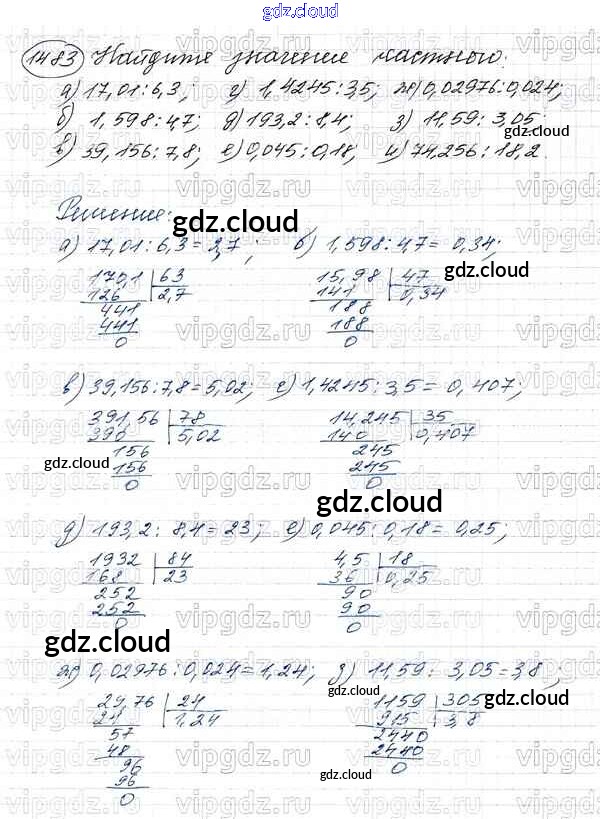 gdz.cloud
1483 Найдите значение частного:
а) 17,01:6,3; г) 1,4245:3,5; ж) 0,02976:0,024;
б) 1,598:4,7; д) 193,2:8,4; з) 11,59:3,05;
gdz.cloud
в) 39,156:7,8; е) 0,045:0,18; и) 74,256:18,2.
Решение:
gdz.cloud
а) 17,01:6,3=2,7; б) 1,598:4,7=0,34;
gdz.cloud
170,1 63 15,98 47
126 2,7 141 0,34
441 188
441 188
0 0
в) 39,156:7,8=5,02; г) 1,4245:3,5=0,407;
391,56 78 14,245 35
390 5,02 140 0,407
156 245
gdz.cloud
156 245
0 0
gdz.cloud
д) 193,2:8,4=23; е) 0,045:0,18=0,25;
1932 84 4,5 18
168 23 36 0,25
252 90
252 90
0 0
gdz.cloud
ж) 0,02976:0,024=1,24; з) 11,59:3,05=3,8;
gdz.cloud
29,76 24 1159 305
gdz.cloud
24 1,24 915 3,8
57 2440
48 2440
96 0
gdz.cloud
96
0
vipgdz.ru